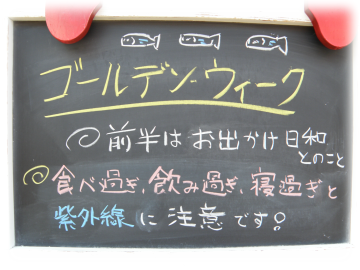 ゴールデン・ウィーク
前半は お出かけ日和
とのこと
食べ過ぎ、飲み過ぎ、寝過ぎと
紫外線に注意です!